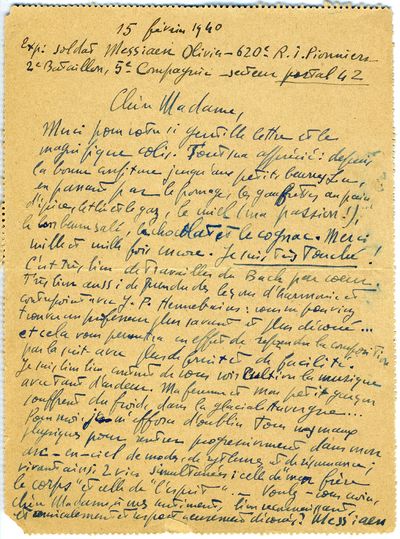 15 février 1940
Exp: soldat Messiaen Olivier – 620e R.I. Pionniers
2e Bataillon, 5e Compagnie – secteur postal 42
Chère Madame,
Merci pour votre si gentille lettre et le
magnifique colis. Tout sera apprécié: depuis
la bonne confiture jusqu'aux petits beurres Lu,
en passant par le fromage, les gaufrettes, au pain
d'épices, le thé et le gaz, le miel (ma passion!),
le bon beurre salé, le chocolat et le cognac. Merci
mille et mille fois encore. Je suis très touché!
C'est très bien de travailler du Bach par cœur.
Très bien aussi de prendre des leçons d'harmonie et
contrepoint avec J. P. Hennebains: vous ne pouviez
trouver un professeur plus savant et plus dévoué...
et cela vous permettra en effet de reprendre la composition
par la suite avec plus de fruit et de facilité.
Je suis bien content de vous voir cultiver la musique
avec tant d'ardeur. Ma femme et mon petit garçon
souffrent du froid, dans la glaciale Auvergne...
Pour moi, je m'efforce d'oublier tous mes maux
physiques pour rentrer progressivement dans mon
arc-en-ciel de modes, de rythmes et de résonances,
vivant ainsi 2 vies simultanées: celle de "mon frère
le corps" et celle de "l'esprit". Voulez-vous croire,
chère Madame, à mes sentiments bien reconnaissants
et amicalement et respectueusement dévoués? Messiaen